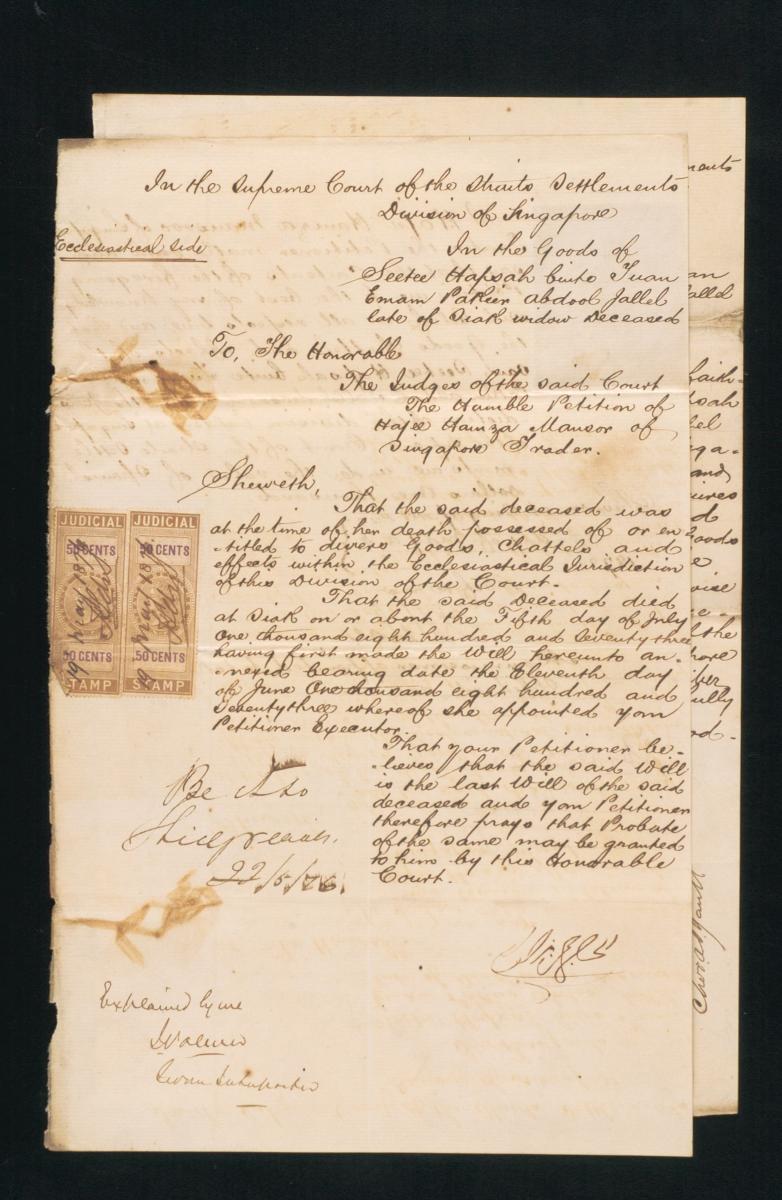 In the Supreme Court of the Straits Settlements
Division of Singapore
Ecclesiastical Side
In the Goods of
Seetee Hapsah binte Tuan
Emam Pakier abdool Jallel
late of Siak widow Deceased
To, The Honorable
The Judges of the said Court
The Humble Petition of
Hajee Hamza Mansor of
Singapore Trader.
Sheweth,
That the said deceased was
at the time of her death possessed of or en-
-titled to divers Goods, Chattels and
effects within the Ecclesiastical Jurisdiction
of this Division of the Court.
That the said Deceased died
at Siak on or about the Fifth day of July
One thousand eight hundred and Seventy three
having first made the Will hereunto an-
-nexed bearing date the Eleventh day
of June One thousand eight hundred and
Seventythree whereof she appointed your
Petitioner Executor.
That your Petitioner be-
-lieves that the said Will
is the last Will of the said
deceased and your Petitioner
therefore prays that Probate
of the same may be granted
to him by this Honorable
Court.
JUDICIAL
50 CENTS
50 CENTS
STAMP
JUDICIAL
50 CENTS
50 CENTS
STAMP
19 May 187
19 May 187
Be it so
22/5/76.
Explained by me